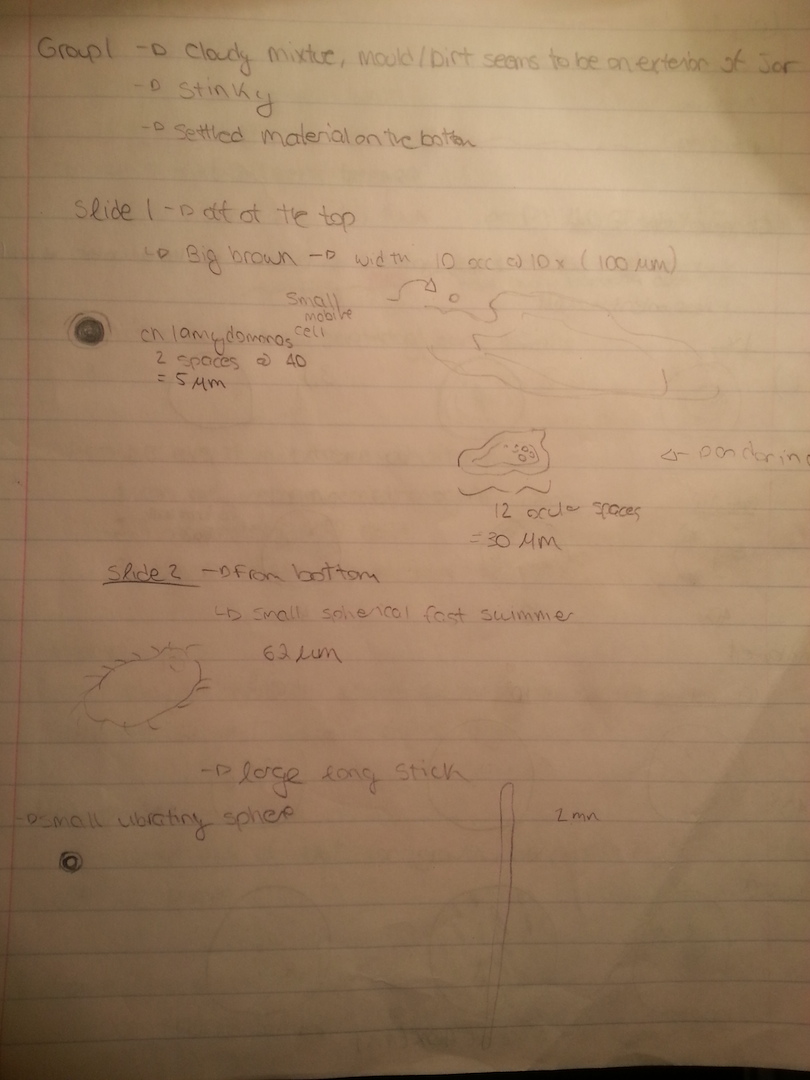 Group 1 → Cloudy mixture, mould/Dirt seems to be on exterior of Jar
→ Stinky
→ settled material on the bottom
Slide 1 → off of the top
↳ Big brown → width 10 occ @ 10x (100 μm)
small mobile cell
chlamydomonas
2 spaces @ 40
= 5 μm
12 ocular spaces
= 30 μm
Slide 2 → From bottom
↳ small spherical fast swimmer
62 μm
→ large long stick
→ small vibrating sphere
2 mm